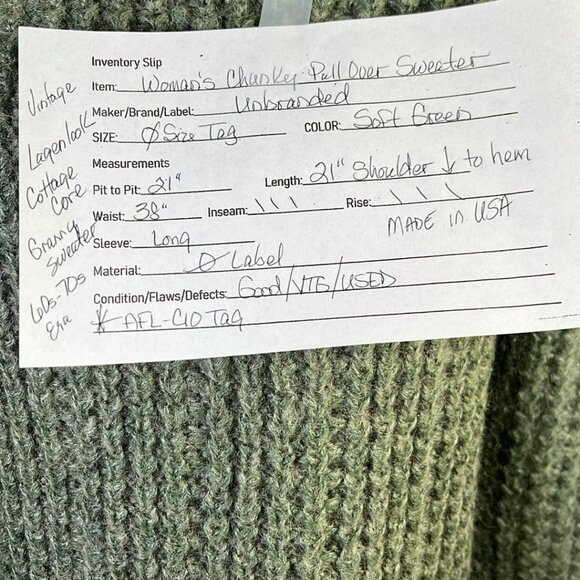 Inventory Slip
Item: Woman's Chunky Pull Over Sweater
Maker/Brand/Label: Unbranded
SIZE: Ø Size Tag COLOR: Soft Green
Measurements
Pit to Pit: 21" Length: 21" Shoulder ↓ to hem
Waist: 38" Inseam: \ \ \ Rise: \ \ \
MADE IN USA
Sleeve: Long
Material: Ø Label
Condition/Flaws/Defects: Good/VTG/USED
* AFL-CIO Tag
Vintage
Lagenlook
Cottage
Core
Granny
Sweater
60s-70s
Era